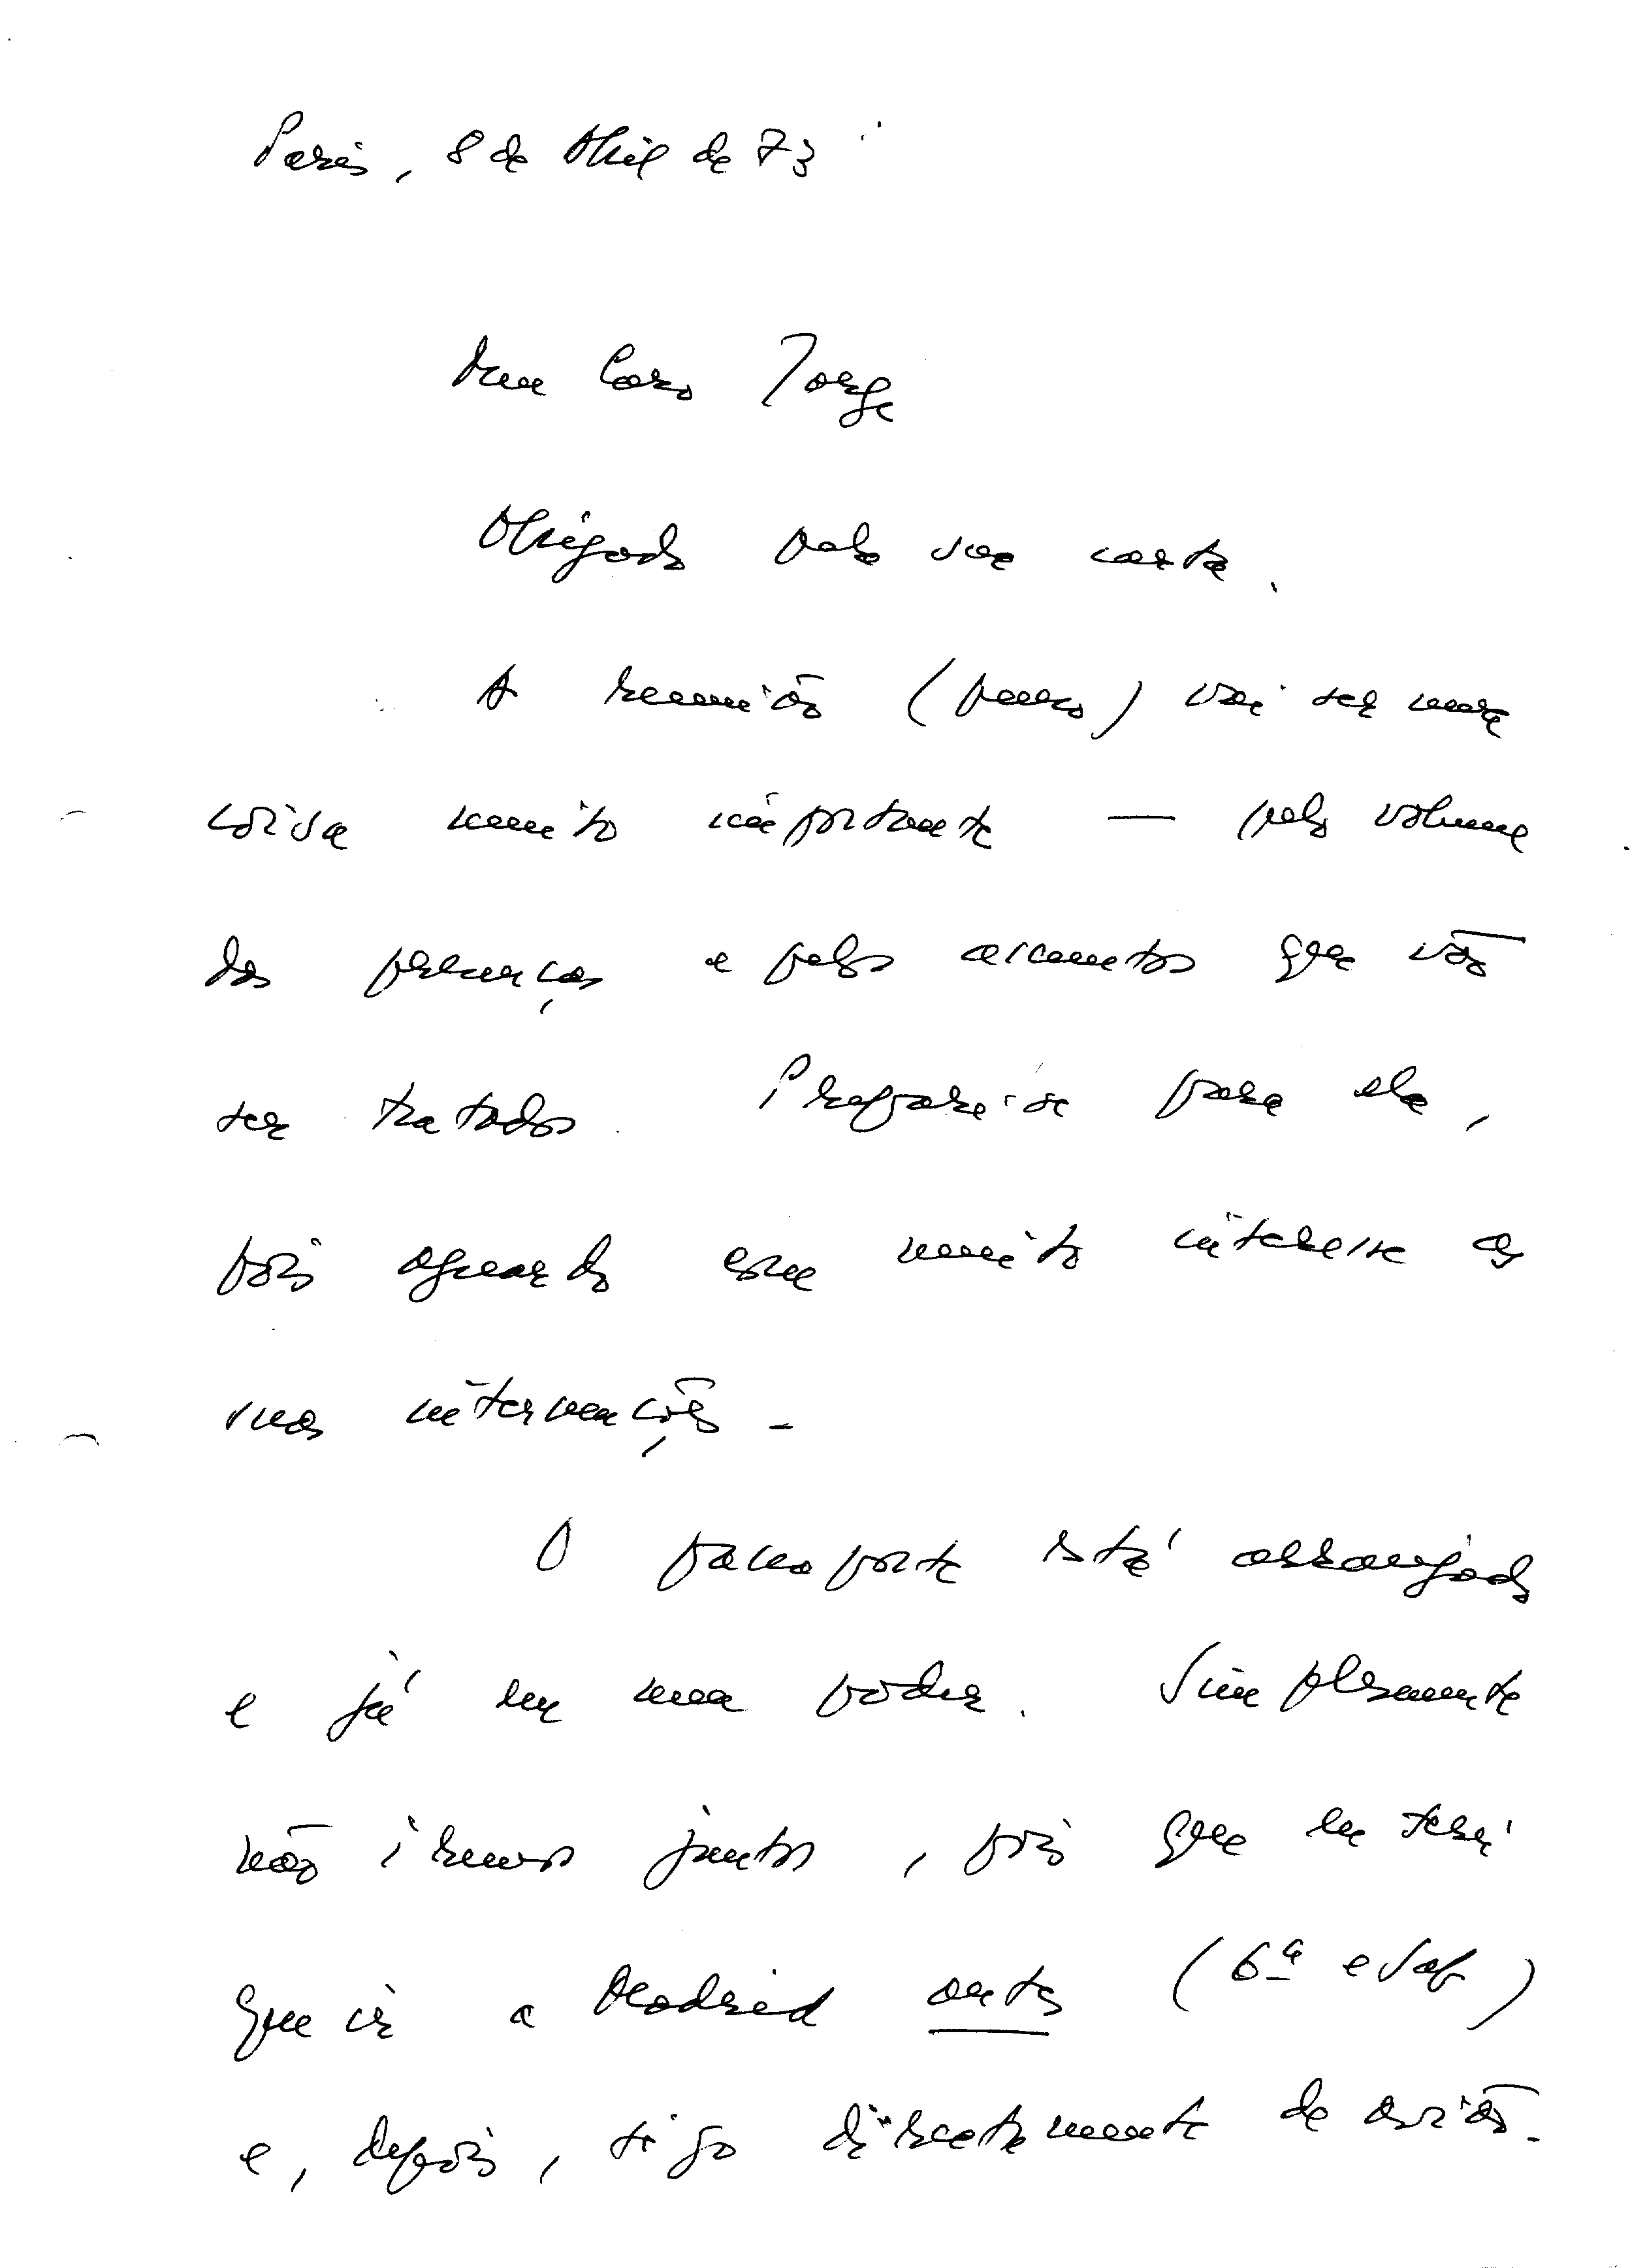 Paris, 8 de Abril de 73
Meu Caro Jorge
Obrigado pela sua carta.
A reunião ( ) vai ser uma
coisa muito importante — pelo volume
das presenças e pelos assuntos que vão
ser tratados. Prepare-se para ela,
pois aguardo com muito interesse as
suas intervenções.
O passaporte está arranjado
e já em meu poder. Simplesmente
não iremos juntos, pois que eu terei
que ir a Madrid antes (6ª e Sab)
e, depois, sigo directamente de avião.